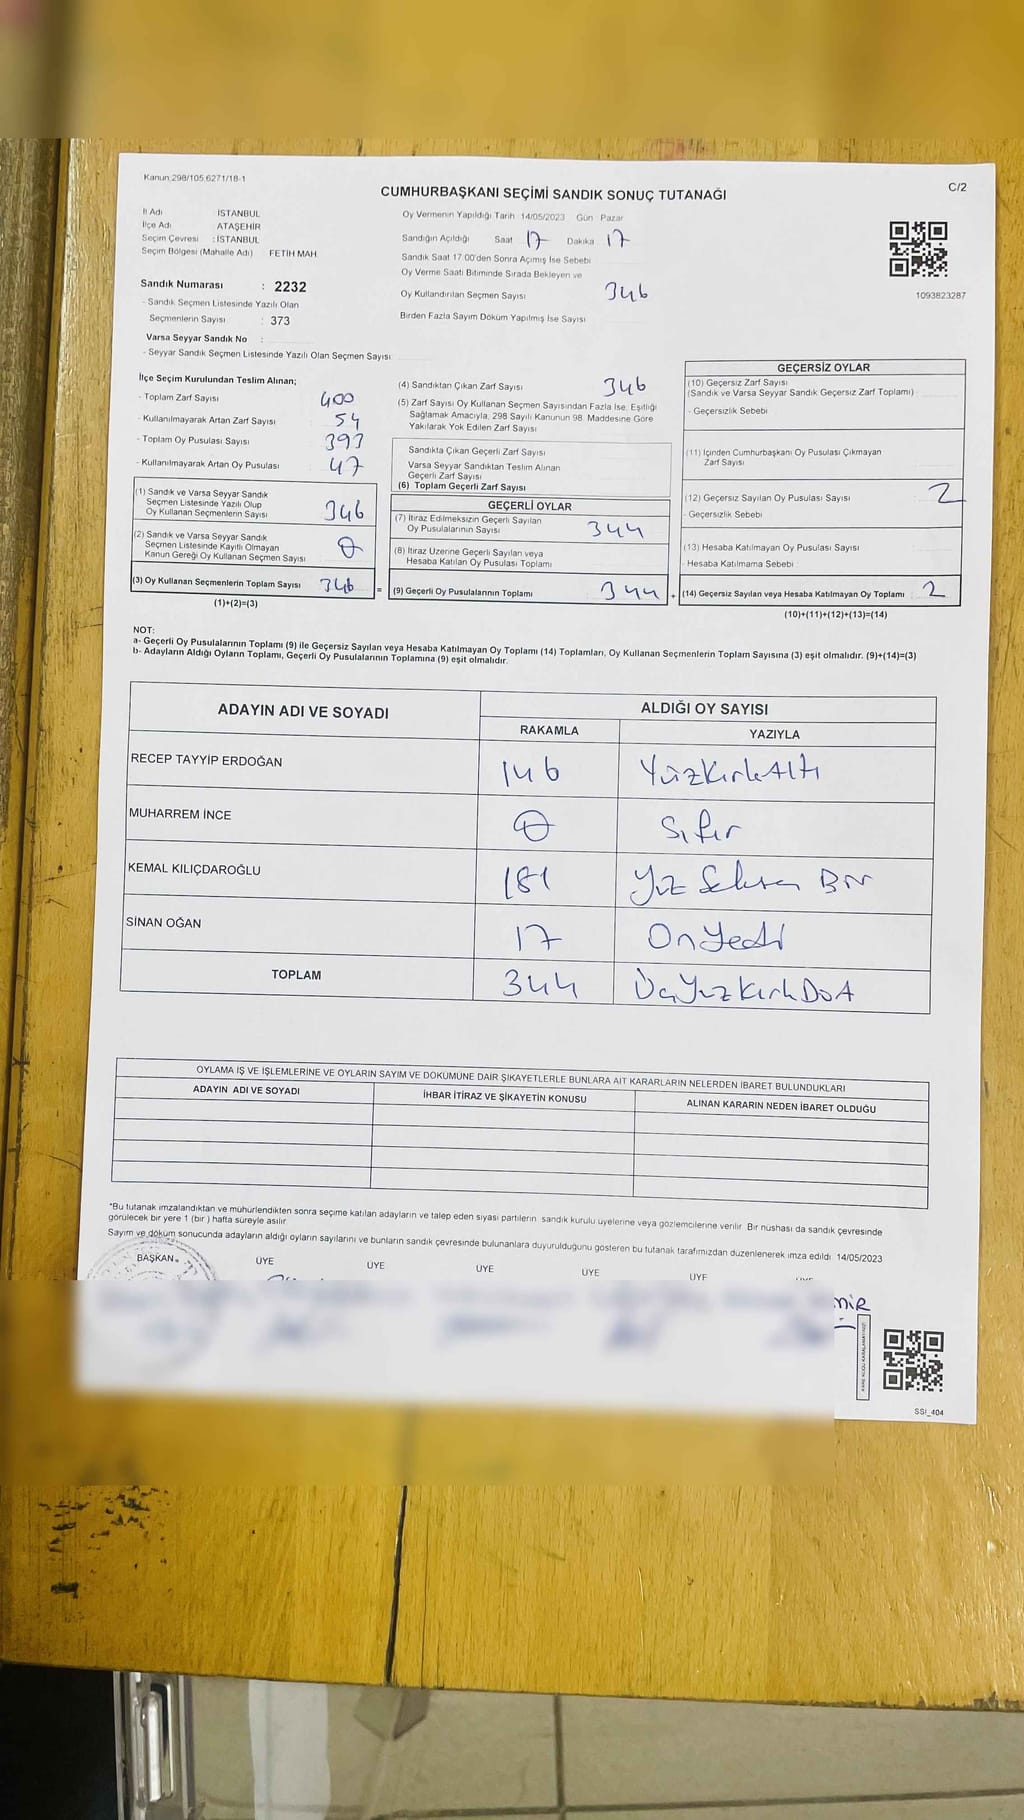 Kanun 298/105,6271/18-1
CUMHURBAŞKANI SEÇİMİ SANDIK SONUÇ TUTANAĞI
C/2
İl Adı İSTANBUL
İlçe Adı ATAŞEHİR
Seçim Çevresi : İSTANBUL
Seçim Bölgesi (Mahalle Adı) FETİH MAH.
Oy Vermenin Yapıldığı Tarih 14/05/2023 Gün Pazar
Sandığın Açıldığı Saat 17 Dakika 17
Sandık Saat 17.00'den Sonra Açımış İse Sebebi
Oy Verme Saati Bitiminde Sırada Bekleyen ve
Oy Kullandırılan Seçmen Sayısı 346
Birden Fazla Sayım Döküm Yapılmış İse Sayısı
1093823287
Sandık Numarası : 2232
- Sandık Seçmen Listesinde Yazılı Olan
Seçmenlerin Sayısı : 373
Varsa Seyyar Sandık No :
- Seyyar Sandık Seçmen Listesinde Yazılı Olan Seçmen Sayısı
İlçe Seçim Kurulundan Teslim Alınan;
- Toplam Zarf Sayısı 400
- Kullanılmayarak Artan Zarf Sayısı 54
- Toplam Oy Pusulası Sayısı 393
- Kullanılmayarak Artan Oy Pusulası 47
(1) Sandık ve Varsa Seyyar Sandık
Seçmen Listesinde Yazılı Olup
Oy Kullanan Seçmenlerin Sayısı 346
(2) Sandık ve Varsa Seyyar Sandık
Seçmen Listesinde Kayıtlı Olmayan
Kanun Gereği Oy Kullanan Seçmen Sayısı 0
(3) Oy Kullanan Seçmenlerin Toplam Sayısı 346
(1)+(2)=(3)
(4) Sandıktan Çıkan Zarf Sayısı 346
(5) Zarf Sayısı Oy Kullanan Seçmen Sayısından Fazla İse, Eşitliği
Sağlamak Amacıyla, 298 Sayılı Kanunun 98. Maddesine Göre
Yakılarak Yok Edilen Zarf Sayısı
Sandıkta Çıkan Geçerli Zarf Sayısı
Varsa Seyyar Sandıktan Teslim Alınan
Geçerli Zarf Sayısı
(6) Toplam Geçerli Zarf Sayısı
GEÇERLİ OYLAR
(7) İtiraz Edilmeksizin Geçerli Sayılan
Oy Pusulalarının Sayısı 344
(8) İtiraz Üzerine Geçerli Sayılan veya
Hesaba Katılan Oy Pusulası Toplamı
= (9) Geçerli Oy Pusulalarının Toplamı 344
GEÇERSİZ OYLAR
(10) Geçersiz Zarf Sayısı
(Sandık ve Varsa Seyyar Sandık Geçersiz Zarf Toplamı)
- Geçersizlik Sebebi
(11) İçinden Cumhurbaşkanı Oy Pusulası Çıkmayan
Zarf Sayısı
(12) Geçersiz Sayılan Oy Pusulası Sayısı 2
- Geçersizlik Sebebi
(13) Hesaba Katılmayan Oy Pusulası Sayısı
- Hesaba Katılmama Sebebi
+ (14) Geçersiz Sayılan veya Hesaba Katılmayan Oy Toplamı 2
(10)+(11)+(12)+(13)=(14)
NOT:
a- Geçerli Oy Pusulalarının Toplamı (9) ile Geçersiz Sayılan veya Hesaba Katılmayan Oy Toplamı (14) Toplamları, Oy Kullanan Seçmenlerin Toplam Sayısına (3) eşit olmalıdır. (9)+(14)=(3)
b- Adayların Aldığı Oyların Toplamı, Geçerli Oy Pusulalarının Toplamına (9) eşit olmalıdır.
ADAYIN ADI VE SOYADI ALDIĞI OY SAYISI
RAKAMLA YAZIYLA
RECEP TAYYİP ERDOĞAN 146 YüzKırkAltı
MUHARREM İNCE 0 Sıfır
KEMAL KILIÇDAROĞLU 181 Yüz Seksen Bir
SİNAN OĞAN 17 OnYedi
TOPLAM 344 ÜçYüzKırkDört
OYLAMA İŞ VE İŞLEMLERİNE VE OYLARIN SAYIM VE DÖKÜMÜNE DAİR ŞİKAYETLERLE BUNLARA AİT KARARLARIN NELERDEN İBARET BULUNDUKLARI
ADAYIN ADI VE SOYADI İHBAR İTİRAZ VE ŞİKAYETİN KONUSU ALINAN KARARIN NEDEN İBARET OLDUĞU
*Bu tutanak imzalandıktan ve mühürlendikten sonra seçime katılan adayların ve talep eden siyasi partilerin sandık kurulu üyelerine veya gözlemcilerine verilir. Bir nüshası da sandık çevresinde
görülecek bir yere 1 (bir) hafta süreyle asılır
Sayım ve döküm sonucunda adayların aldığı oyların sayılarını ve bunların sandık çevresinde bulunanlara duyurulduğunu gösteren bu tutanak tarafımızdan düzenlenerek imza edildi 14/05/2023
BAŞKAN ÜYE ÜYE ÜYE ÜYE ÜYE
MİR
SSI_404